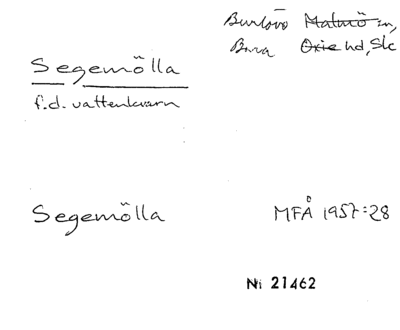 Burlöv Malmö sn,
Bara Oxie hd, Sk
Segemölla
f.d. vattenkvarn
Segemölla MFÅ 1957:28
Nr 21462